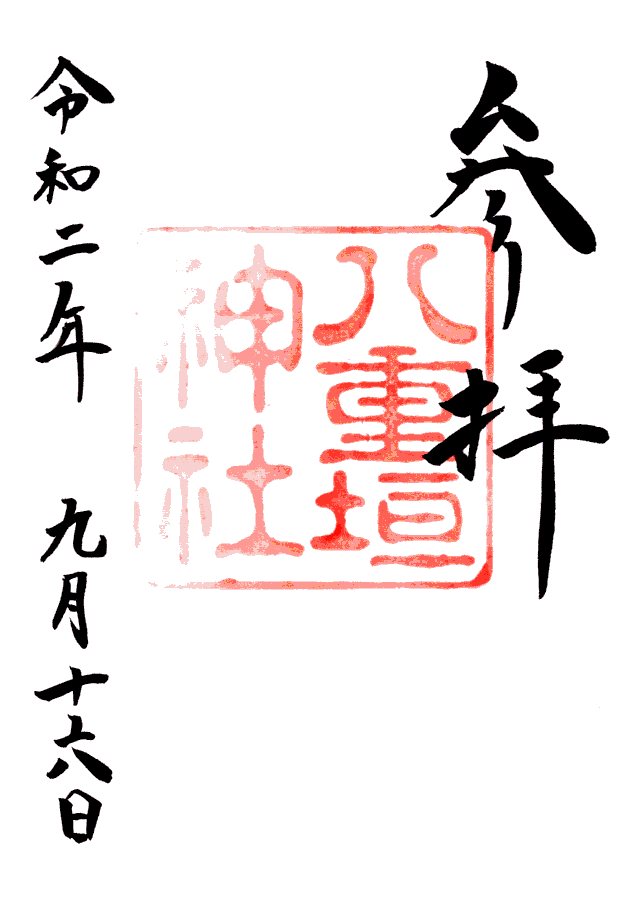 参拝
八重垣
神社
令和二年 九月十六日